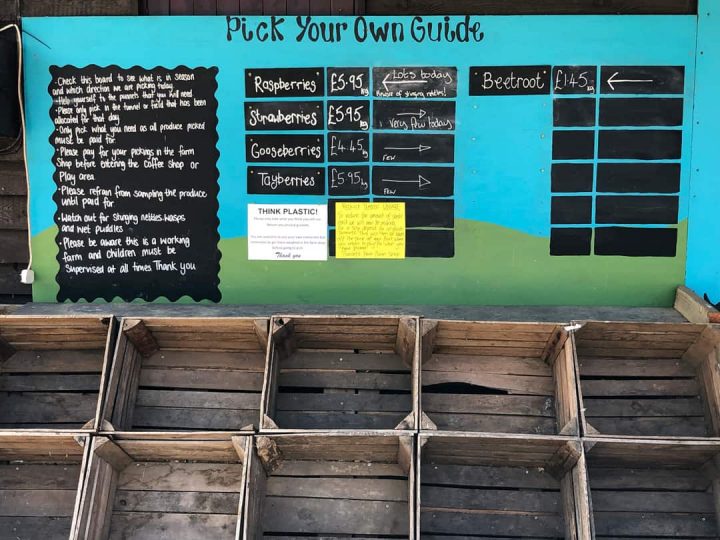 Pick Your Own Guide
· Check this board to see what is in season
and which direction we are picking today
· Help yourself to the punnets that you will need
· Please only pick in the tunnel or field that has been
allocated for that day
· Only pick what you need as all produce picked
must be paid for
· Please pay for your pickings in the farm
Shop before entering the Coffee Shop or
Play area
· Please refrain from sampling the produce
until paid for
· Watch out for Stinging nettles, Wasps
and wet puddles
· Please be aware this is a working
farm and children must be
Supervised at all times Thank you
Raspberries £5.95 kg Lots today
Beware of stinging nettles!
Strawberries £5.95 kg Very few today
Gooseberries £4.45 kg FEW
Tayberries £5.95 kg FEW
Beetroot £1.45 kg
THINK PLASTIC!
Thank you